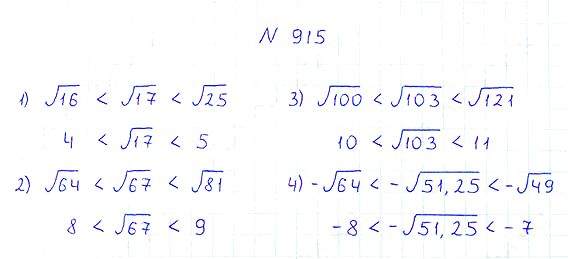 N 915
1) √16 < √17 < √25
4 < √17 < 5
2) √64 < √67 < √81
8 < √67 < 9
3) √100 < √103 < √121
10 < √103 < 11
4) -√64 < -√51,25 < -√49
-8 < -√51,25 < -7